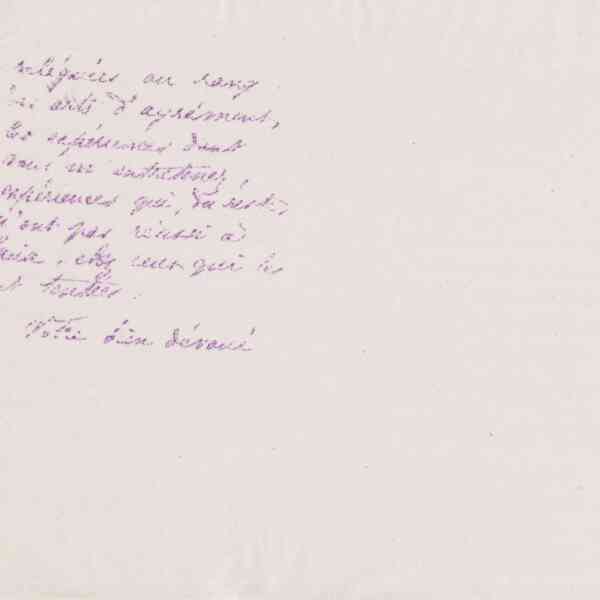 reléguées au rang
arts d'agrément,
expériences dont
vous m'entretenez,
expériences qui, du reste,
n'ont pas réussi à
, chez ceux qui les
tentées.
Votre bien dévoué